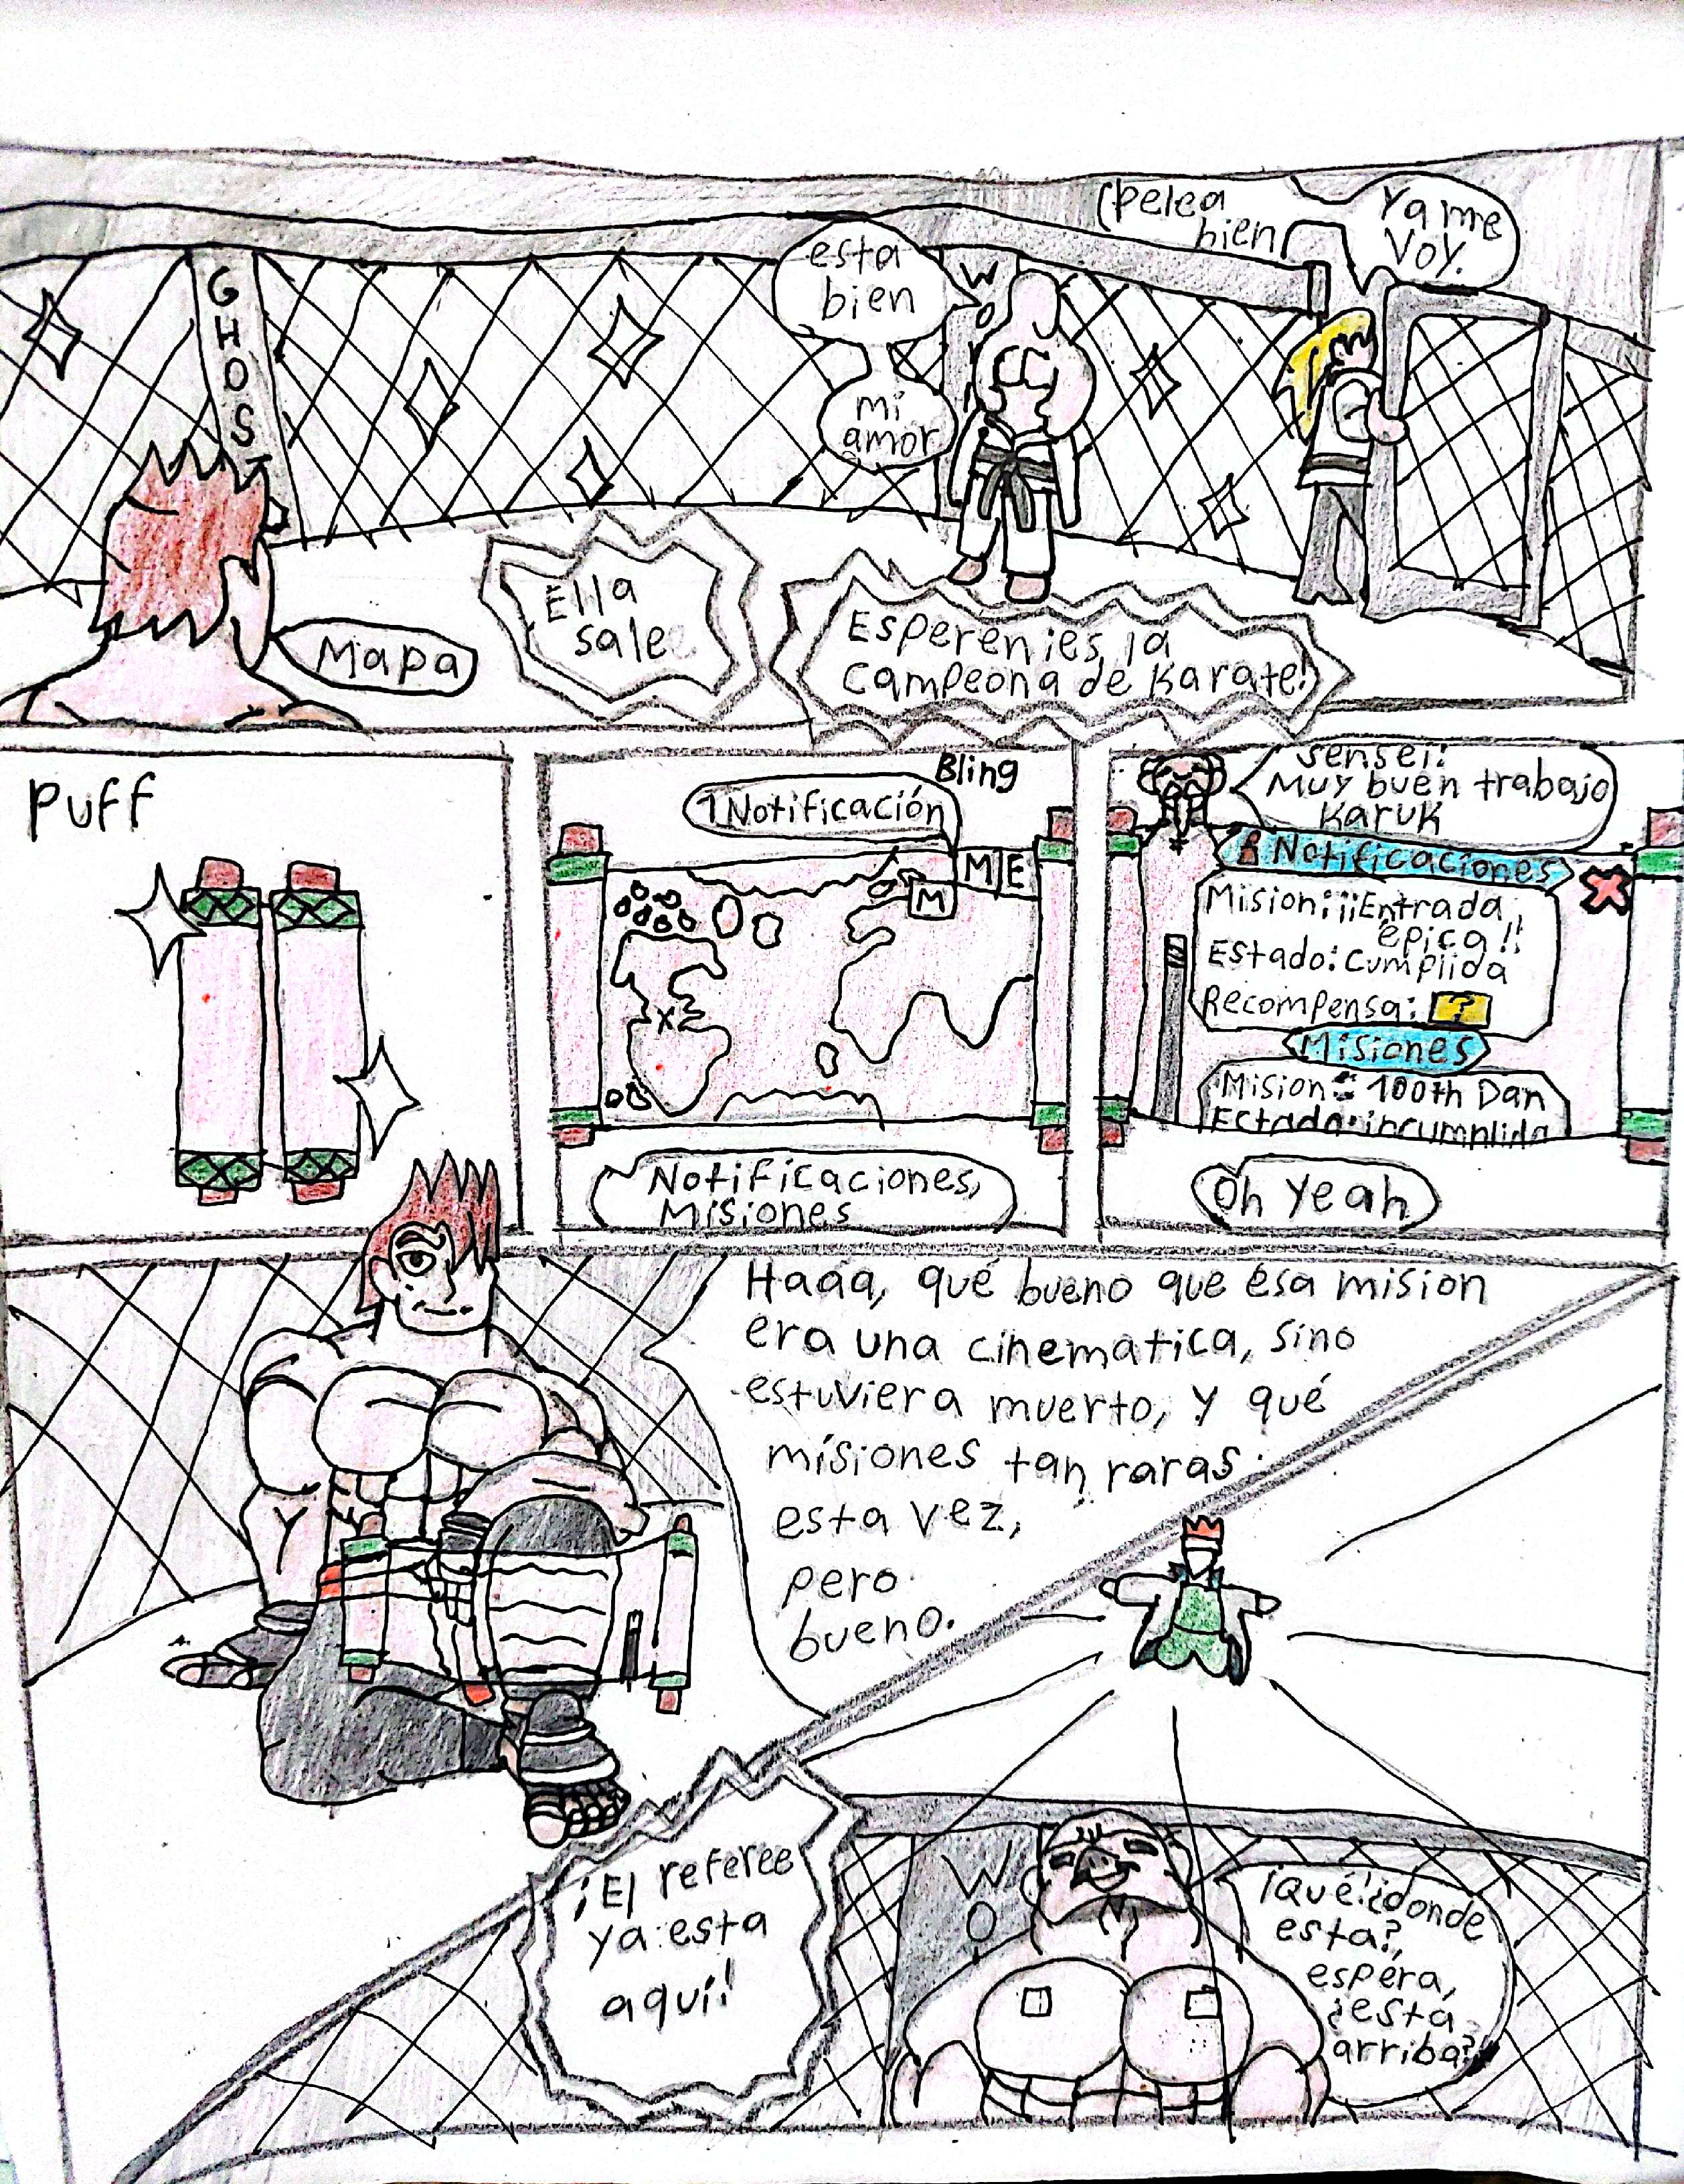 GHOST
esta
bien
mi
amor
WO
¡pelea
bien
Ya me
voy.
Mapa
Ella
sale
Esperen ¡es la
campeona de karate!
Puff
Bling
1 Notificación
M E
M
X
Notificaciones,
Misiones
sensei:
Muy buen trabajo
Karuk
Notificaciones
Mision: ¡¡Entrada
épica!!
Estado: Cumplida
Recompensa: ?
Misiones
Mision: 100th Dan
Estado: incumplida
Oh Yeah
Haaa, qué bueno que esa mision
era una cinematica, sino
estuviera muerto, y qué
misiones tan raras
esta vez,
pero
bueno.
¡El referee
ya esta
aquí!
WO
¡Qué! ¿donde
esta?,
espera,
¿esta
arriba?